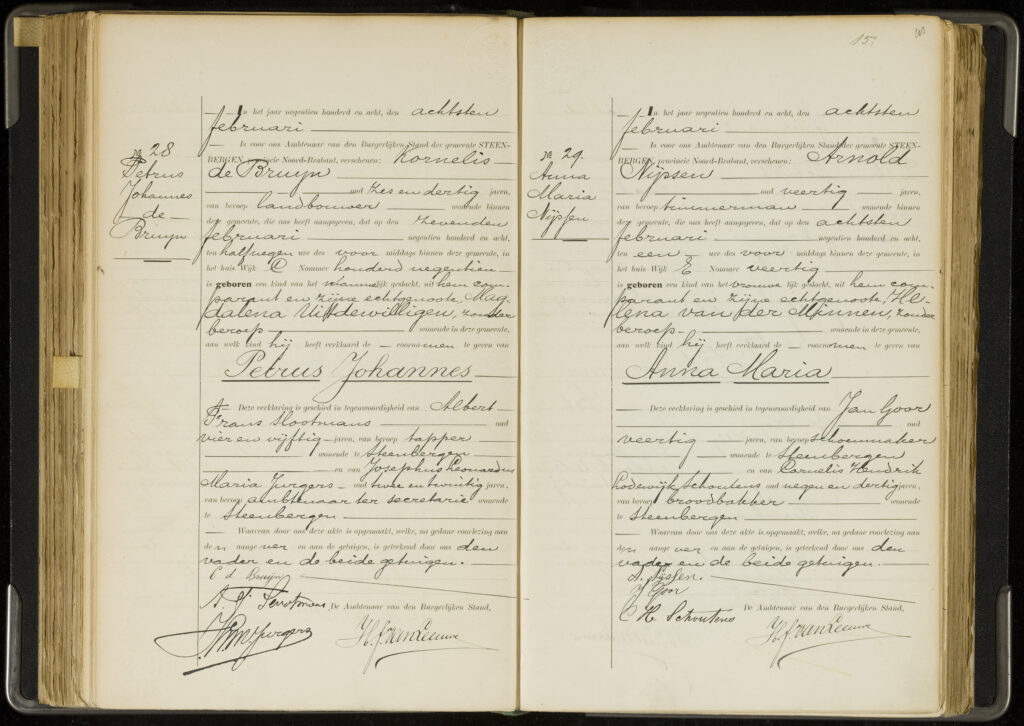 No 28
Petrus
Johannes
de
Bruyn
In het jaar negentien honderd en acht, den achtsten
februari
Is voor ons Ambtenaar van den Burgerlijken Stand der gemeente STEEN-
BERGEN, provincie Noord-Brabant, verschenen: Kornelis
de Bruyn
oud zes en dertig jaren,
van beroep landbouwer wonende binnen
deze gemeente, die ons heeft aangegeven, dat op den zevenden
februari negentien honderd en acht,
ten half negen ure des voor middags binnen deze gemeente, in
het huis Wijk C Nommer honderd negentien
is geboren een kind van het mannelijk geslacht, uit hem com-
parant en zijne echtgenoote, Mag-
dalena Uitdewilligen, zonder
beroep wonende in deze gemeente,
aan welk kind hij heeft verklaard de voornamen te geven van
Petrus Johannes
Deze verklaring is geschied in tegenwoordigheid van Albert
Frans Slootmans oud
vier en vijftig jaren, van beroep tapper
wonende te Steenbergen
en van Josephus Leonardus
Maria Jurgers oud twee en twintig jaren,
van beroep ambtenaar ter secretarie wonende
te Steenbergen
Waarvan door ons deze akte is opgemaakt, welke, na gedane voorlezing aan
den aangever en aan de getuigen, is geteekend door ons den
vader en de beide getuigen.
C d Bruijn
A. F. Slootmans
De Ambtenaar van den Burgerlijken Stand,
Jurgers
H. J. van Leeuw
15
No 29.
Anna
Maria
Nijssen
In het jaar negentien honderd en acht, den achtsten
februari
Is voor ons Ambtenaar van den Burgerlijken Stand der gemeente STEEN-
BERGEN, provincie Noord-Brabant, verschenen: Arnold
Nijssen
oud veertig jaren,
van beroep timmerman wonende binnen
deze gemeente, die ons heeft aangegeven, dat op den achtsten
februari negentien honderd en acht,
ten een ure des voor middags binnen deze gemeente, in
het huis Wijk E Nommer veertig
is geboren een kind van het vrouwelijk geslacht, uit hem com-
parant en zijne echtgenoote, He-
lena van der Minnen, zonder
beroep wonende in deze gemeente,
aan welk kind hij heeft verklaard de voornamen te geven van
Anna Maria
Deze verklaring is geschied in tegenwoordigheid van Jan Goor
oud
veertig jaren, van beroep schoenmaker
wonende te Steenbergen
en van Cornelis Hendrik
Lodewijk Schoutens oud negen en dertig jaren,
van beroep broodbakker wonende
te Steenbergen
Waarvan door ons deze akte is opgemaakt, welke, na gedane voorlezing aan
den aangever en aan de getuigen, is geteekend door ons den
vader en de beide getuigen.
A. Nijssen.
J Goor
C H Schoutens
De Ambtenaar van den Burgerlijken Stand,
H. J. van Leeuw